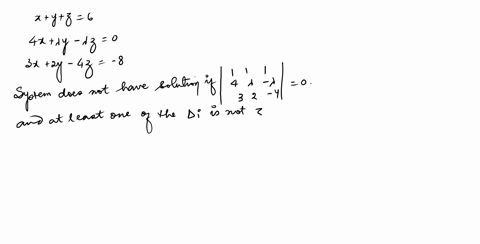 x+y+z=6
4x+λy-λz=0
3x+2y-4z=-8
System does not have solution if | 1 1 1 |
| 4 λ -λ | =0.
| 3 2 -4 |
and at least one of the Δi is not z